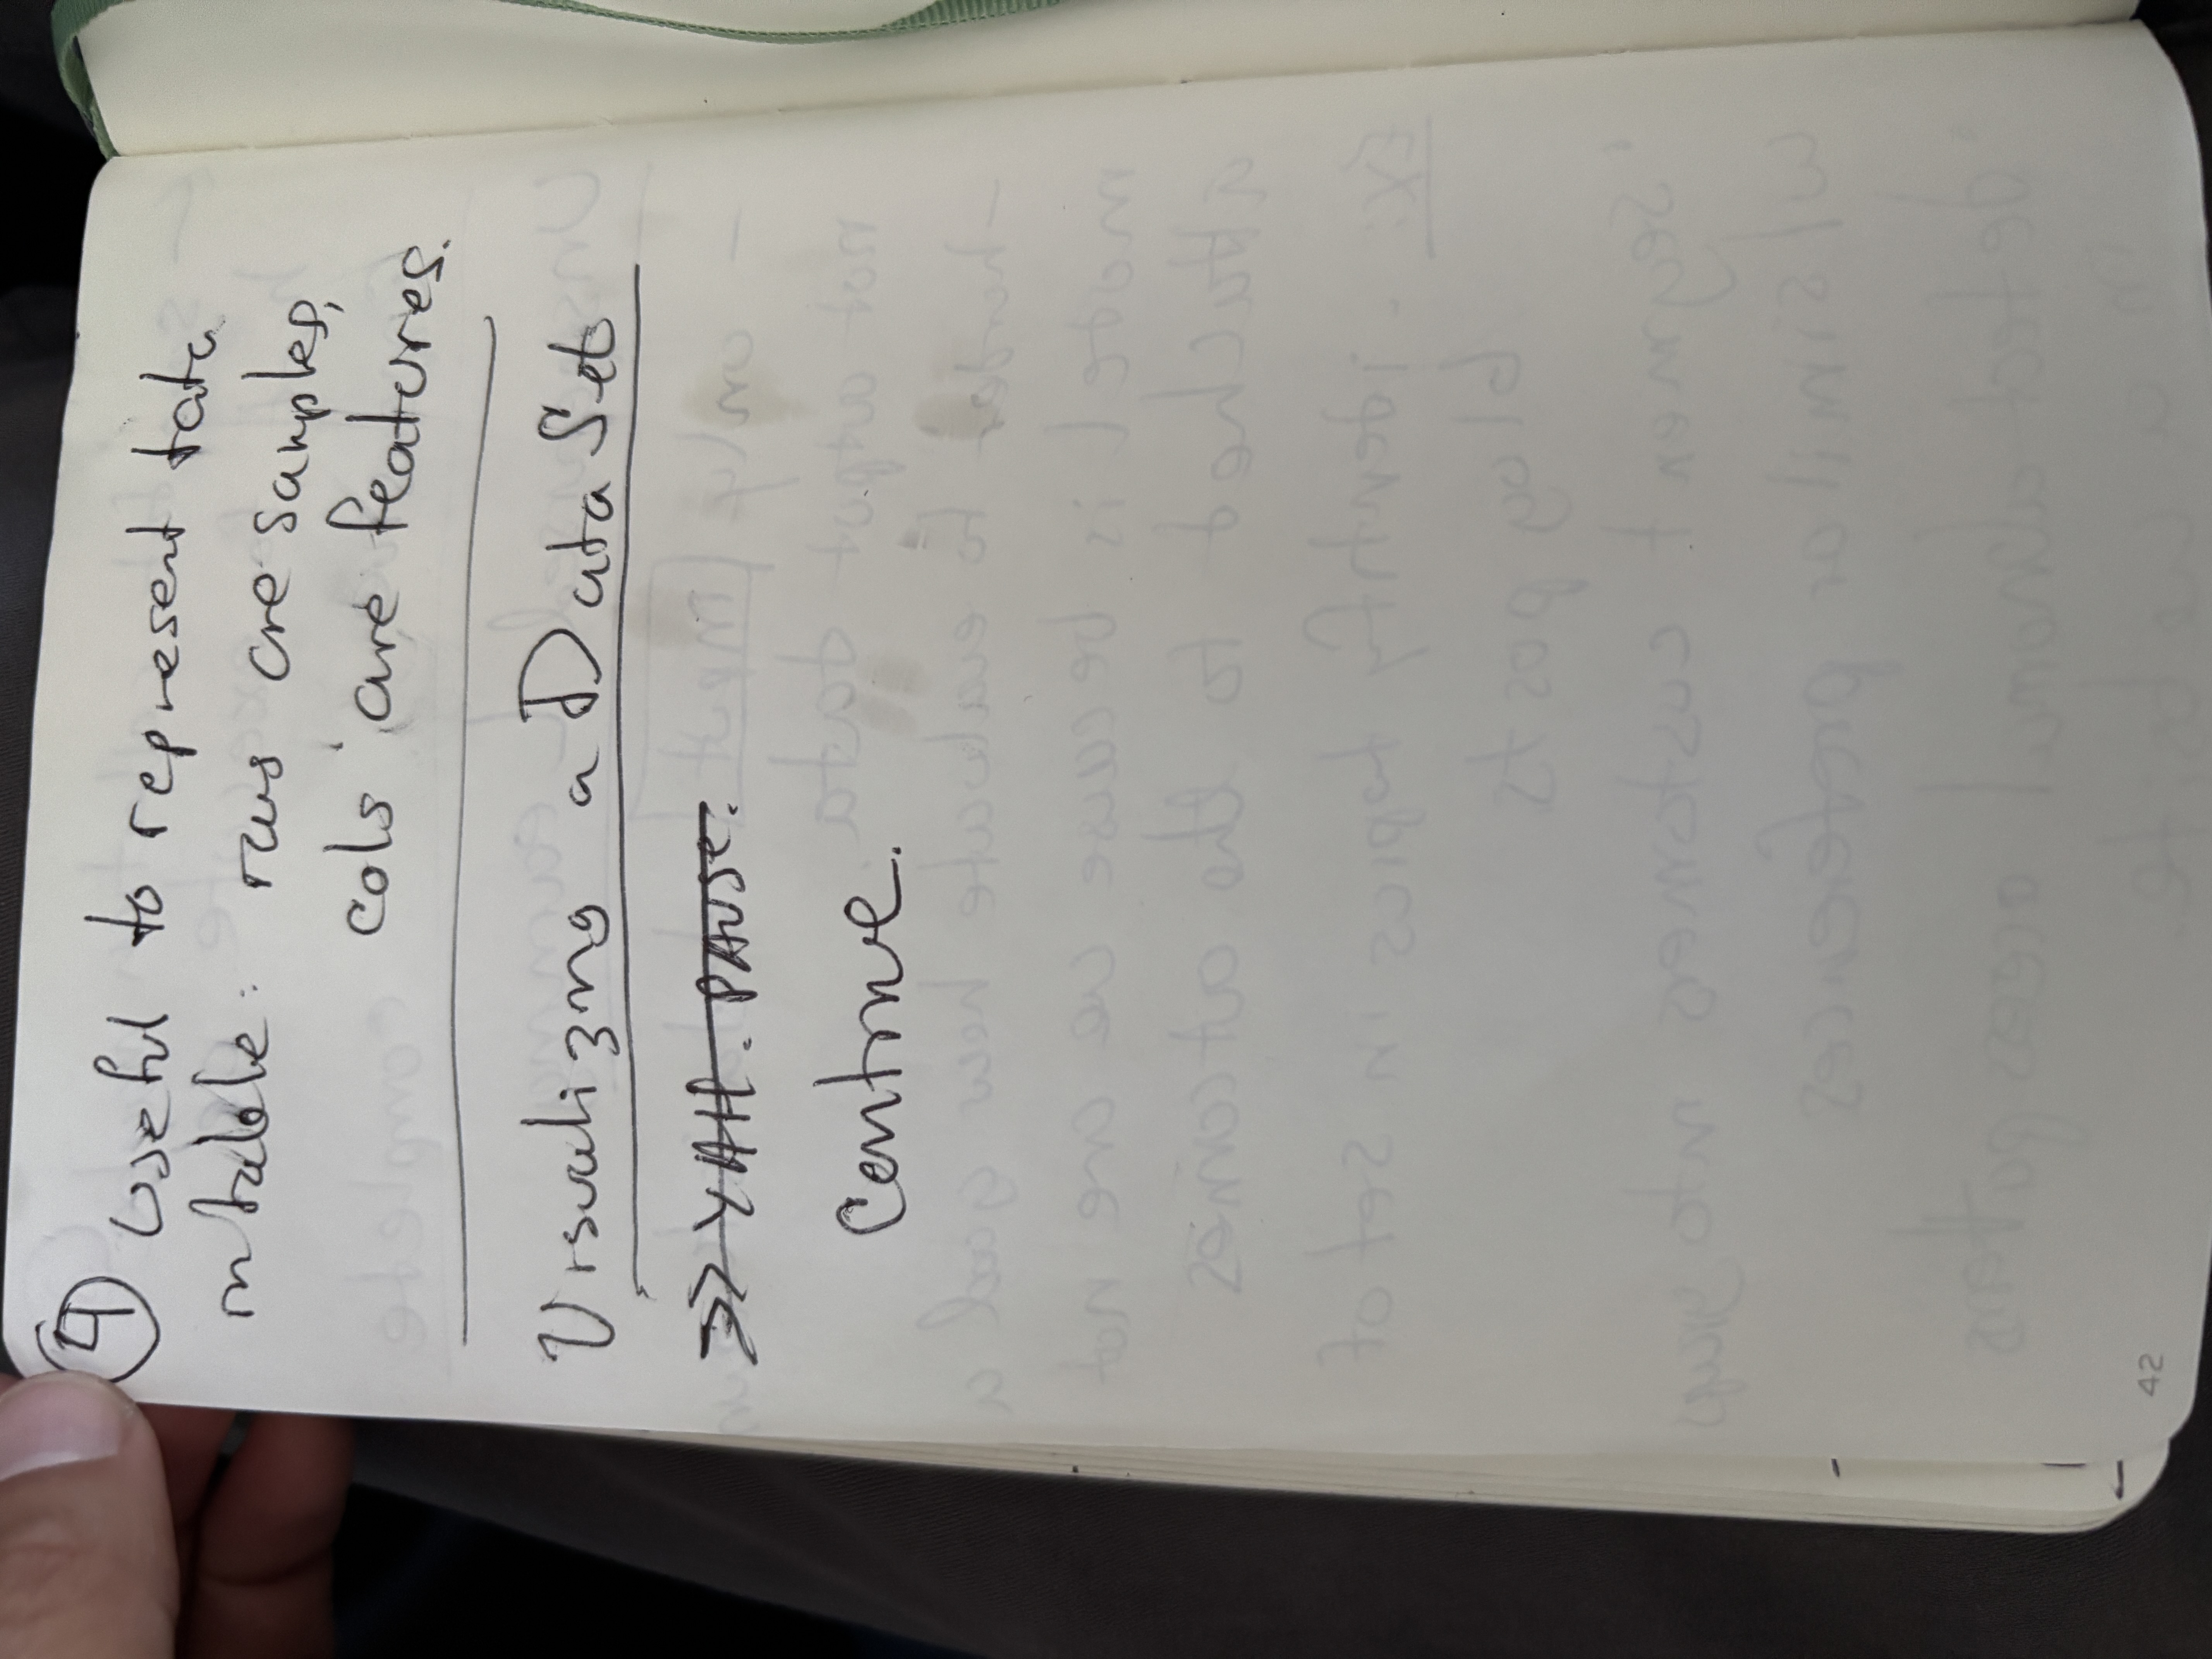 ④ Useful to represent data
in table: rows are samples,
cols are features.
Visualizing a Data Set
>> YAH. PAUSE.
Continue.
42